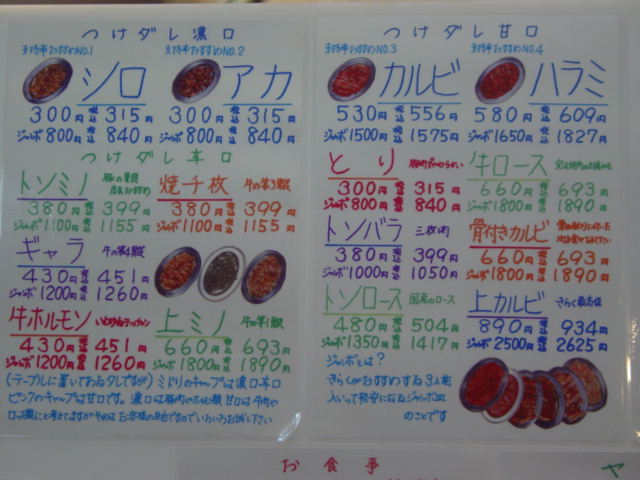 つけダレ濃口
支持率おすすめNO.1
シロ
300円 税込 315円
ジャンボ800円 税込 840円
支持率おすすめNO.2
アカ
300円 税込 315円
ジャンボ800円 税込 840円
つけダレ辛口
トンミノ
380円 税込 399円
ジャンボ1100円 税込 1155円
焼千枚 牛の第3胃袋
380円 税込 399円
ジャンボ1100円 税込 1155円
ギャラ 牛の第4胃袋
430円 税込 451円
ジャンボ1200円 税込 1260円
牛ホルモン
430円 税込 451円
ジャンボ1200円 税込 1260円
上ミノ 牛の第1胃袋
660円 税込 693円
ジャンボ1800円 税込 1890円
(テーブルに置いてあるタレですが)ミドリのキャップは濃口辛口
ピンクのキャップは甘口です。濃口は豚肉やホルモン類 甘口は牛肉や
ロース類にと考えてますが それは お客様の自由ですのでいろいろお試し下さい
つけダレ甘口
支持率おすすめNO.3
カルビ
530円 税込 556円
ジャンボ1500円 税込 1575円
支持率おすすめNO.4
ハラミ
580円 税込 609円
ジャンボ1650円 税込 1827円
とり
300円 税込 315円
ジャンボ800円 税込 840円
牛ロース
660円 税込 693円
ジャンボ1800円 税込 1890円
トンバラ 三枚肉
380円 税込 399円
ジャンボ1000円 税込 1050円
骨付きカルビ
660円 税込 693円
ジャンボ1800円 税込 1890円
トンロース 国産のロース
480円 税込 504円
ジャンボ1350円 税込 1417円
上カルビ さらく最高位
890円 税込 934円
ジャンボ2500円 税込 2625円
ジャンボとは?
さらくがおすすめする3人前
入いって格安になるジャンボ皿
のことです
お食事
ヤ